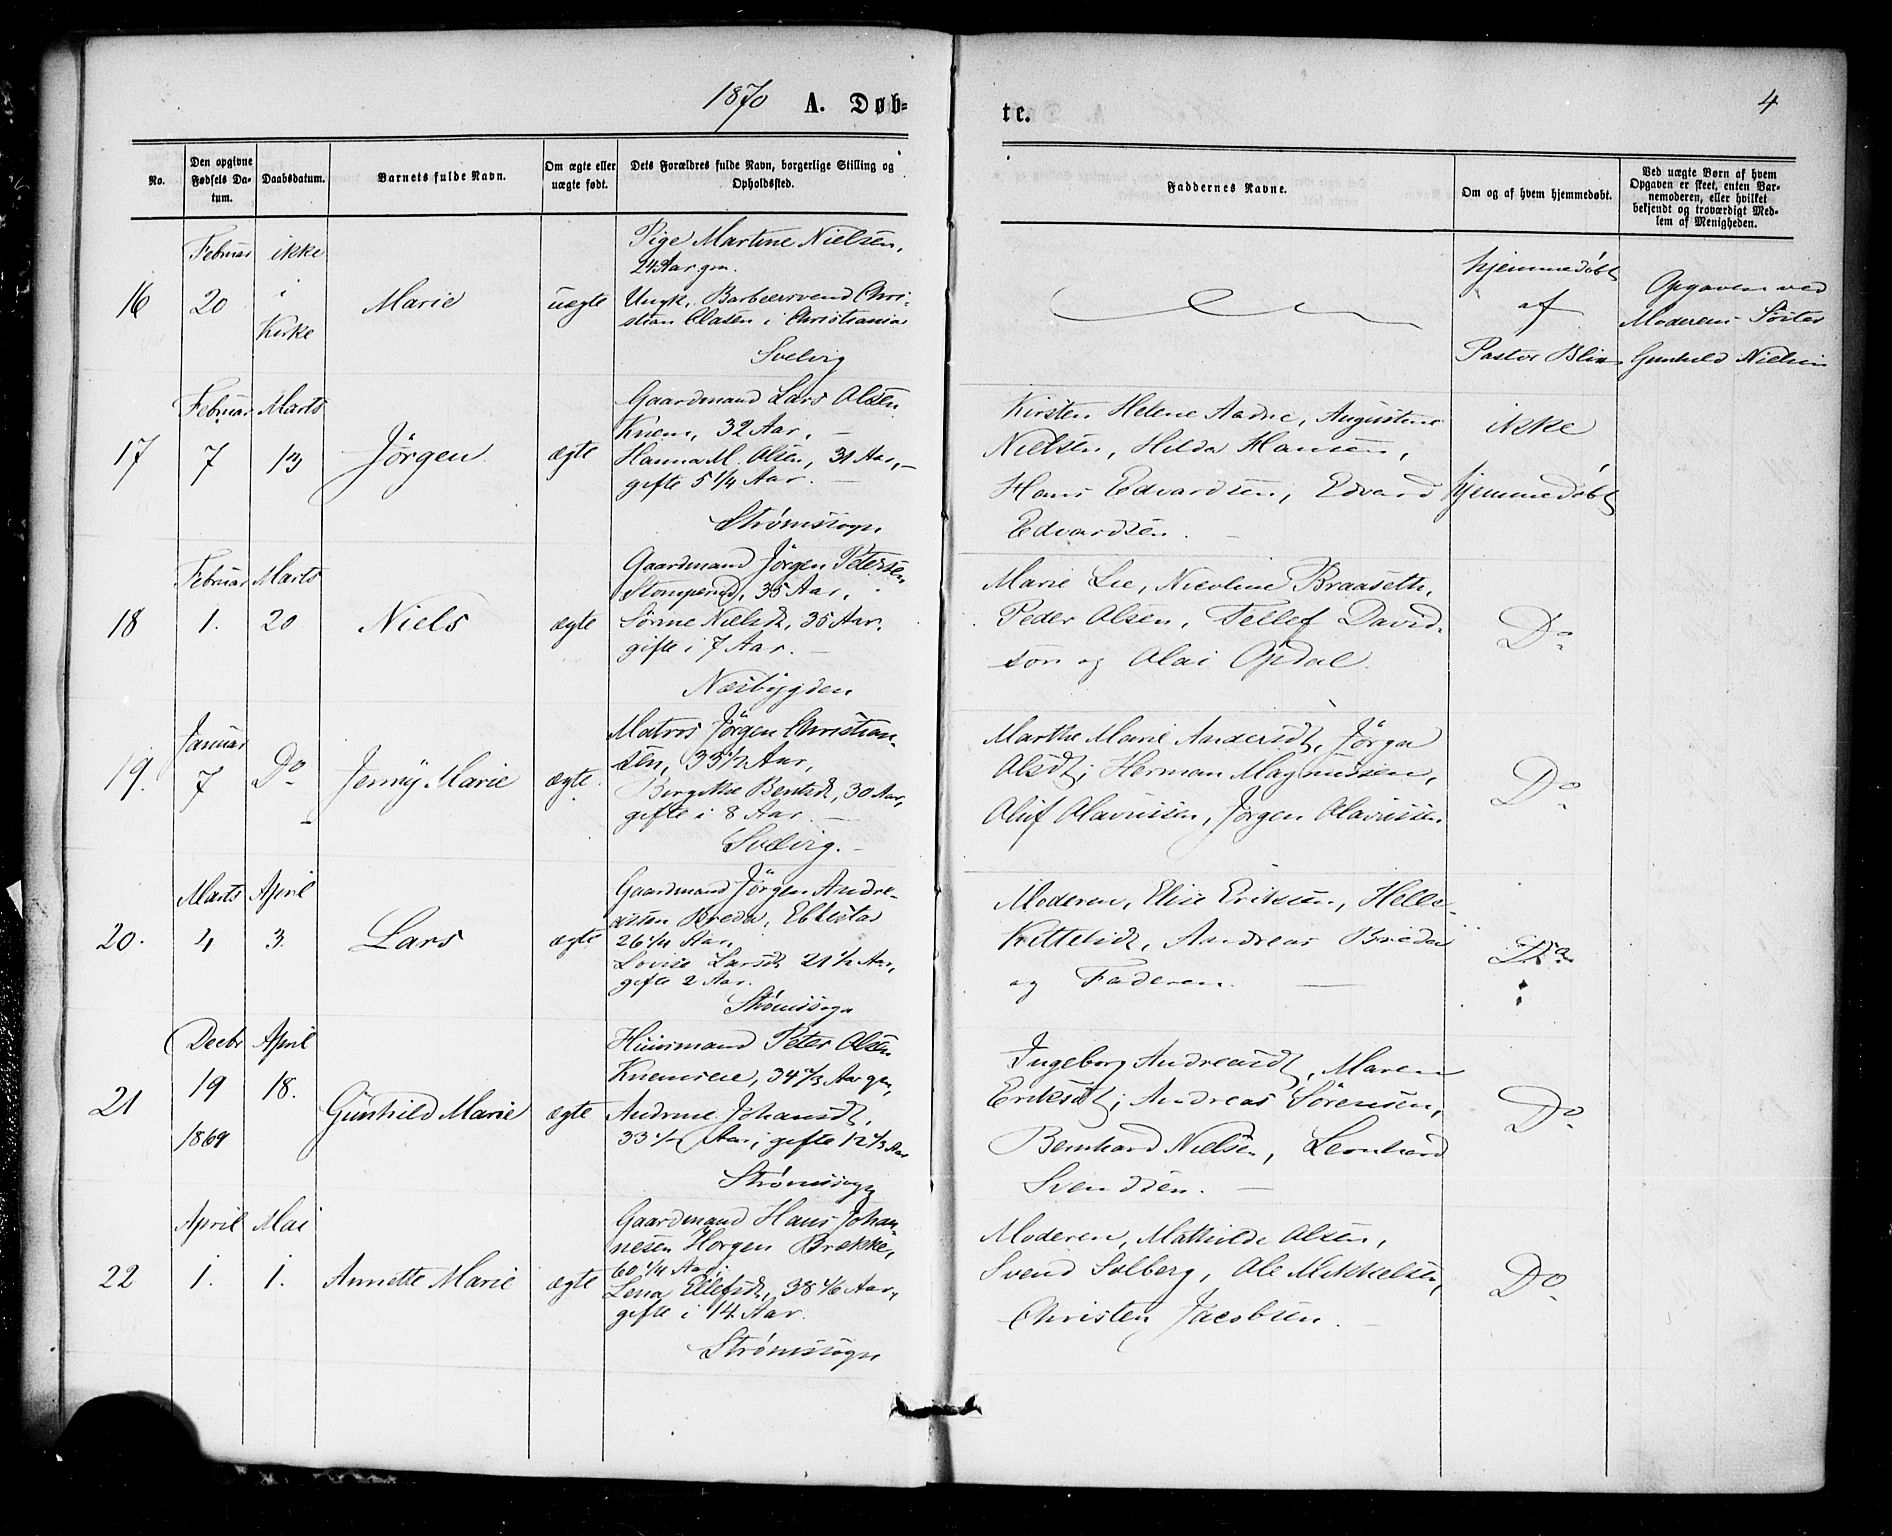 1870 A. Døb=
te. 4
No.
Den opgivne Fødsels Datum.
Daabsdatum.
Barnets fulde Navn.
Om ægte eller uægte født.
Dets Forældres fulde Navn, borgerlige Stilling og Opholdssted.
Faddernes Navne.
Om og af hvem hjemmedøbt.
Ved uægte Børn af hvem Opgaven er skeet, enten Barnemoderen, eller hvilket bekjendt og troværdigt Medlem af Menigheden.
16
Februar
20
ikke
i
Kirke
Marie
uægte
Pige Martine Nielsen,
24 Aar gm.
Ungk. Barbeersvend Chri-
stian Olasen i Christiania
Svelvig
hjemmedøbt
af
Pastor Blix
Opgaven ved
Moderens Søster
Gunhild Nielsen
17
Februar
7
Marts
13
Jörgen
ægte
Gaardmand Lars Olsen
Knem, 32 Aar,
Hanna M. Olsen, 31 Aar,
gifte 5 1/4 Aar.
Strømssogn
Kirsten Helene Aadne, Augustine
Nielsen, Hilda Hansen,
Hans Edvardsen, Edvard
Edvardsen.
ikke
hjemmedøbt
18
Februar
1.
Marts
20
Niels
ægte
Gaardmand Jörgen Petersen
Stomperud, 35 Aar,
Sörine Nielsd, 35 Aar,
gifte i 7 Aar.
Næsbygden
Marie Lie, Nicoline Braaseth,
Peder Olsen, Tellef David-
son og Olai Opdal.
Do
19.
Januar
7
Do
Jenny Marie
ægte
Matros Jörgen Christian-
sen, 33 1/2 Aar,
Birgithe Bentsd, 30 Aar,
gifte i 8 Aar.
Svelvig.
Marthe Marie Andersdt, Jörgen
Olsdt, Herman Magnussen,
Oluf Olavussen, Jörgen Olavussen
Do
20.
Marts
4
April
3.
Lars
ægte
Gaardmand Jörgen Andre-
assen Breda, Ebbestad
26 1/4 Aar,
Lovise Larsd, 21 1/2 Aar,
gifte 2 Aar.
Strömssogn
Moderen, Elise Eriksen, Helle
Kittelsd, Andreas Breda
og Faderen.
Do
21
Decbr
19
1869
April
18.
Gunhild Marie
ægte
Huusmand Peter Olsen
Knemseie, 34 2/3 Aar gm,
Andrine Johansdt,
33 1/2 Aar, gifte 12 1/3 Aar
Strømssogn
Ingeborg Andreasdt, Maren
Eriksdt, Andreas Sörensen,
Bernhard Nielsen, Leonhard
Svendsen.
Do
22
April
1.
Mai
1.
Annette Marie
ægte
Gaardmand Hans Johan-
nesen Horgen Brække,
60 1/4 Aar,
Lena Ellefsdt, 38 1/6 Aar,
gifte i 14 Aar.
Strømssogn
Moderen, Mathilde Olsen,
Svend Solberg, Ole Mikkelsen,
Christen Jacobsen.
Do